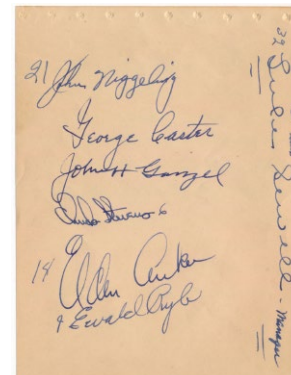 21 John Niggeling
George Caster
John H Ganzel
Chuck Stevens 6
14 Elden Auker
9 Ewald Pyle
32 Luke Sewell - Manager